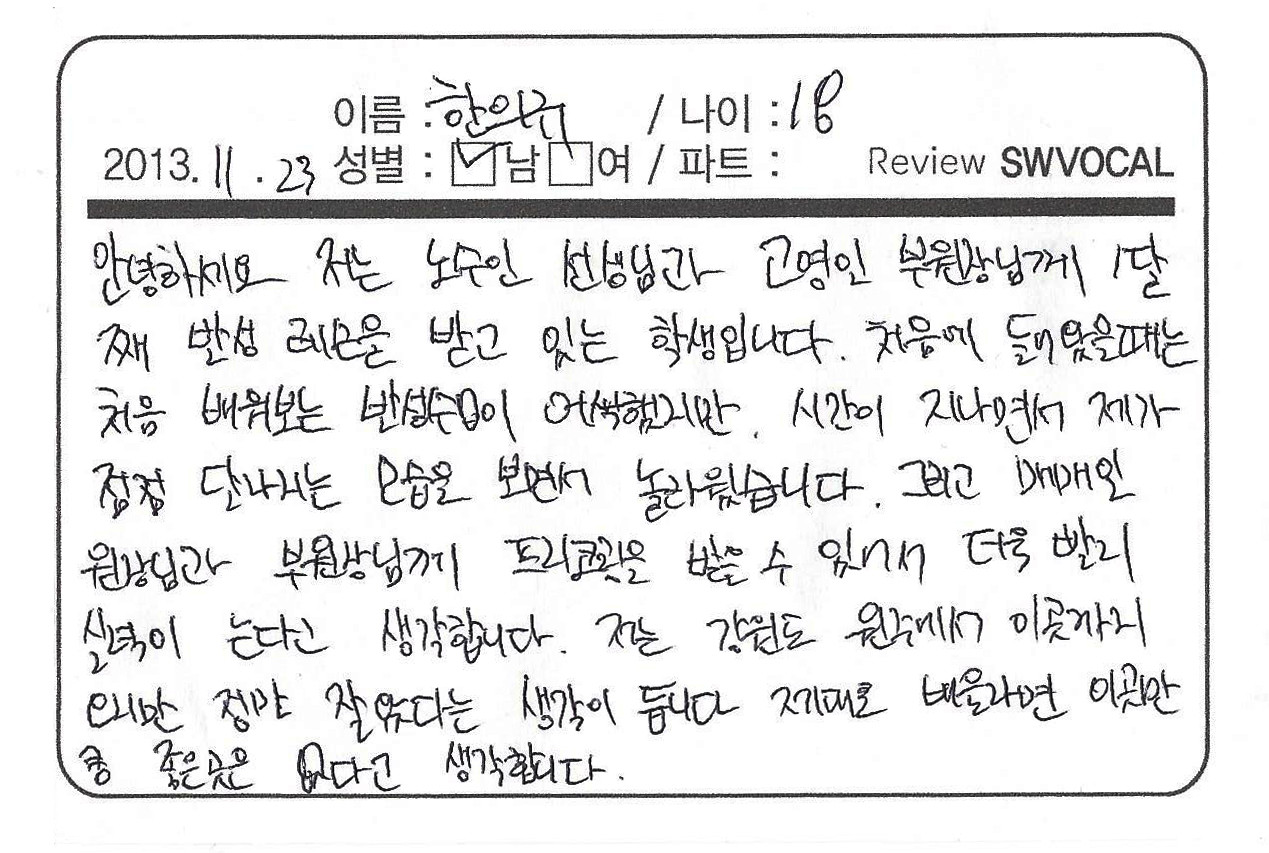 이름 : 한의규 / 나이 : 18
2013. 11 . 23 성별 : ☑남 □여 / 파트 : Review SWVOCAL
안녕하세요 저는 노수인 선생님과 고영인 부원장님께 1달
째 발성 레슨을 받고 있는 학생입니다. 처음에 들어왔을때는
처음 배워보는 발성수업이 어색했지만. 시간이 지나면서 제가
점점 달라지는 모습을 보면서 놀라웠습니다. 그리고 매매일
원장님과 부원장님께 프리코칭을 받을 수 있어서 더욱 빨리
실력이 는다고 생각합니다. 저는 강원도 원주에서 이곳까지
오지만 정말 잘왔다는 생각이 듭니다 제대로 배울라면 이곳만
큼 좋은곳은 없다고 생각합니다.